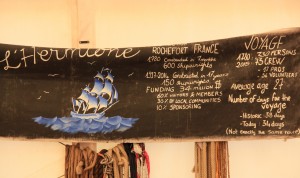 L'Hermione
ROCHEFORT FRANCE
1780 Constructed in 11 months
600 shipwrights
1997-2014 Constructed in 17 years
150 shipwrights
FUNDING 34 million $
60% VISITORS & MEMBERS
30% BY LOCAL COMMUNITIES
10% SPONSORING
VOYAGE
1780
PERSONS
CREW
VOLUNTEER
Average age: 27
Number of days for the
voyage
- Historic: 38 days
- Today: 34 days
(Not exactly the same route)